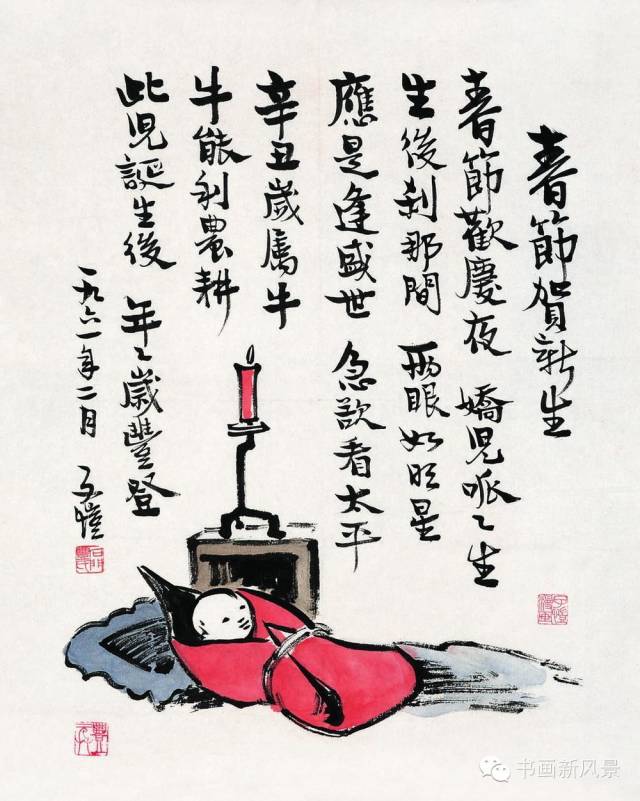 春節賀新生
春節歡慶夜 嬌兒呱〻生
生後刹那間 兩眼如明星
應是逢盛世 急欲看太平
辛丑歲屬牛
牛能利農耕
此兒誕生後 年〻歲豐登
一九六一年二月 子愷
书画新风景